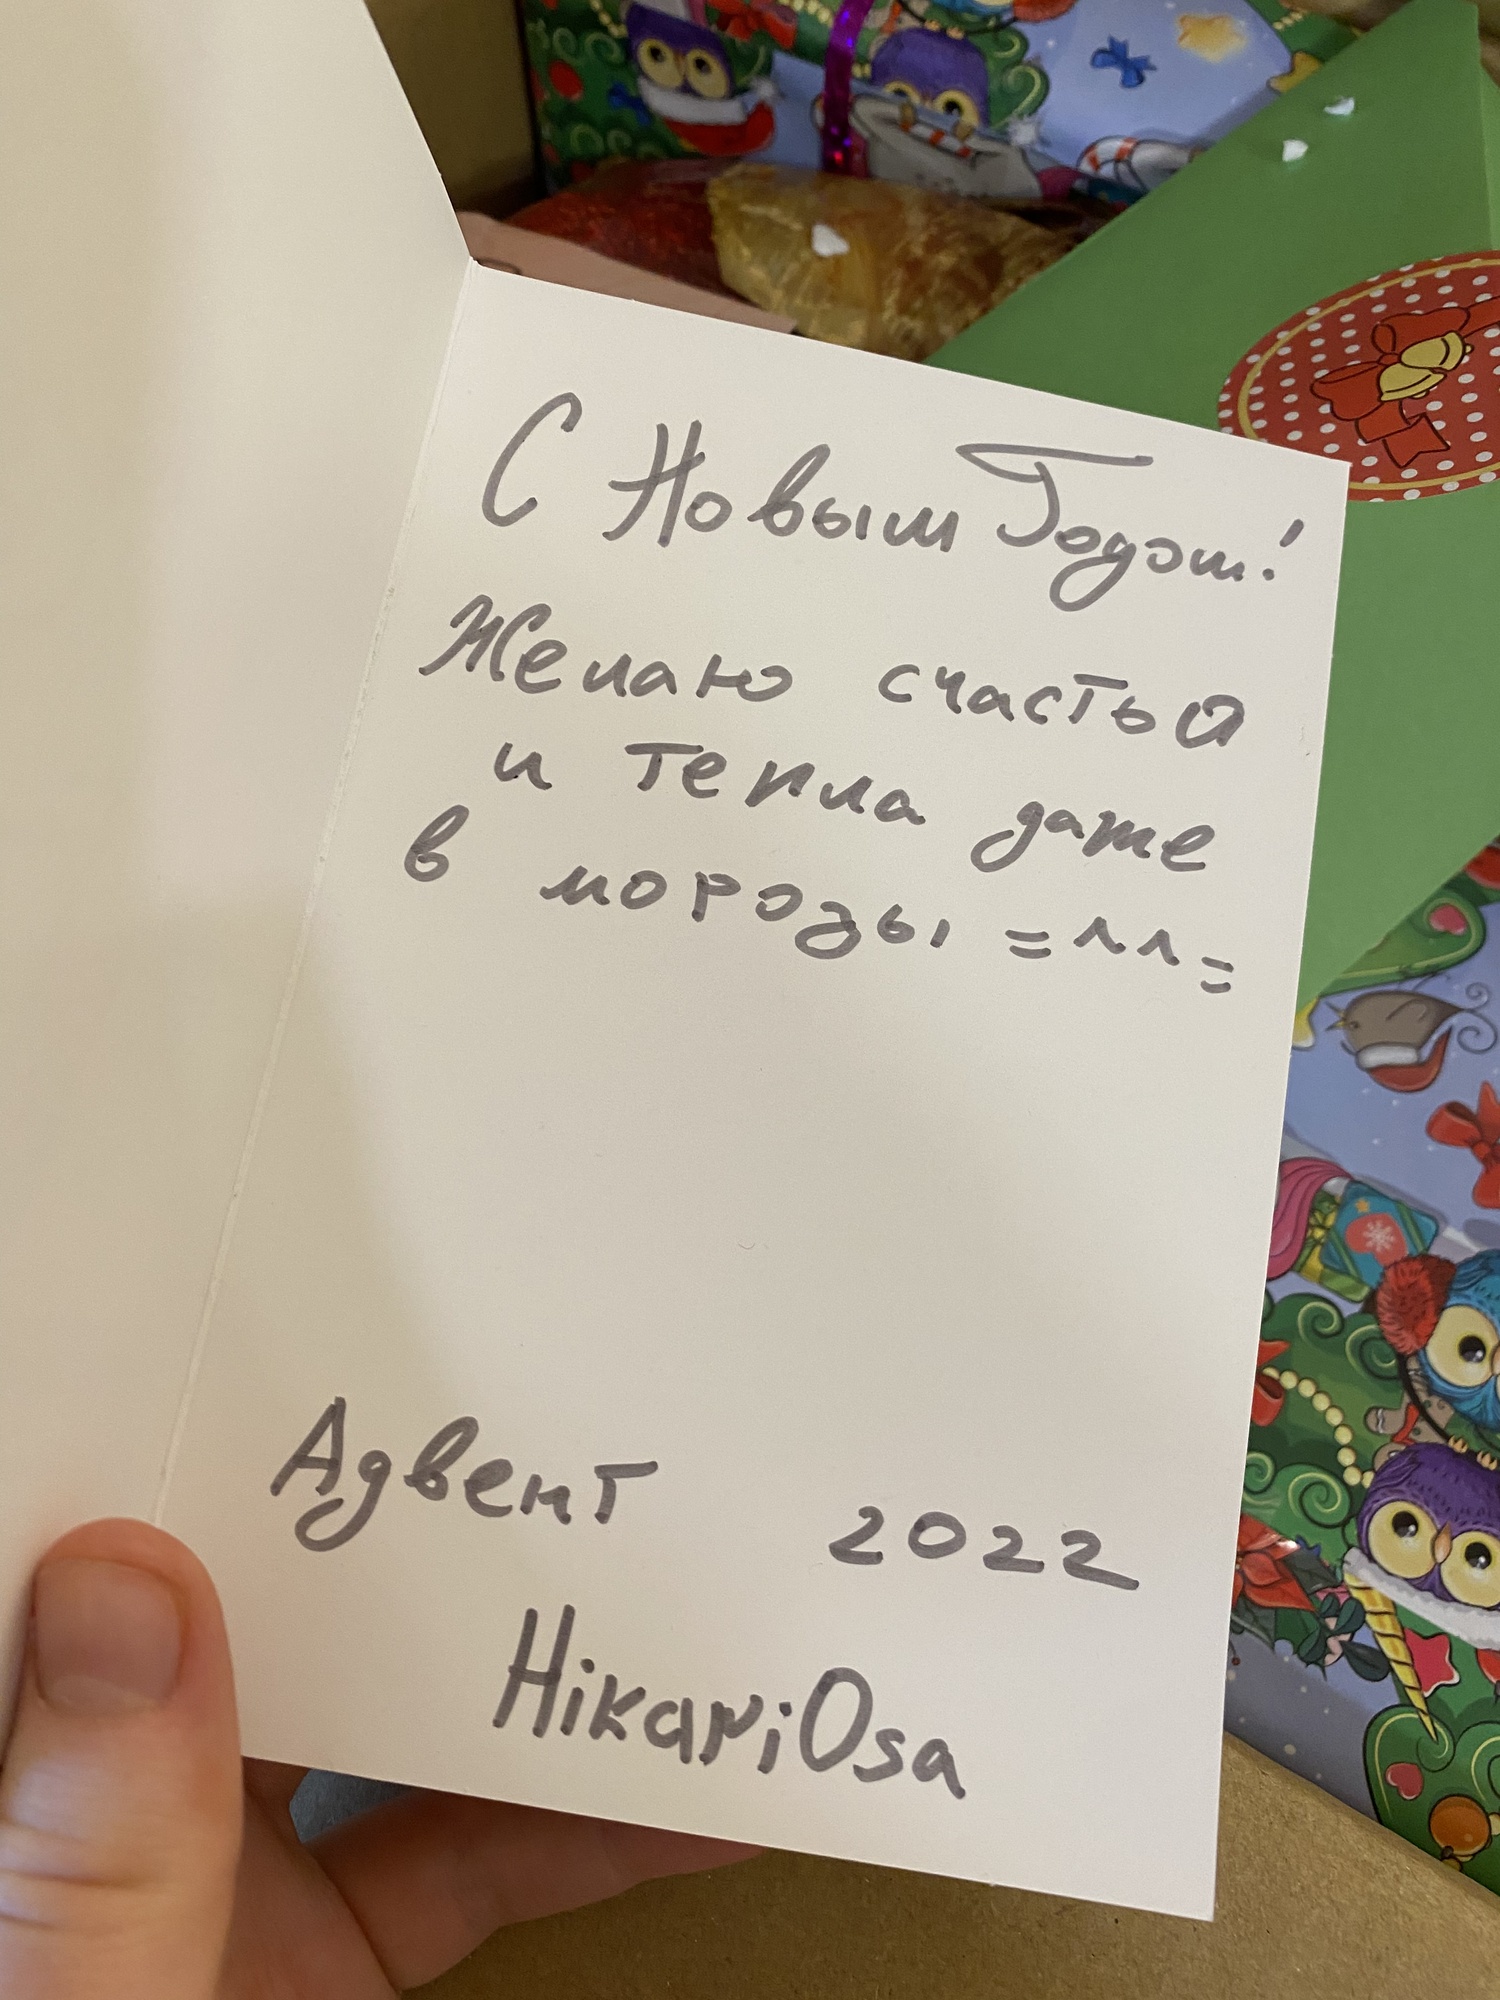 С Новым Годом!
Желаю счастья
и тепла даже
в морозы =^^=
Адвент 2022
HikariOsa